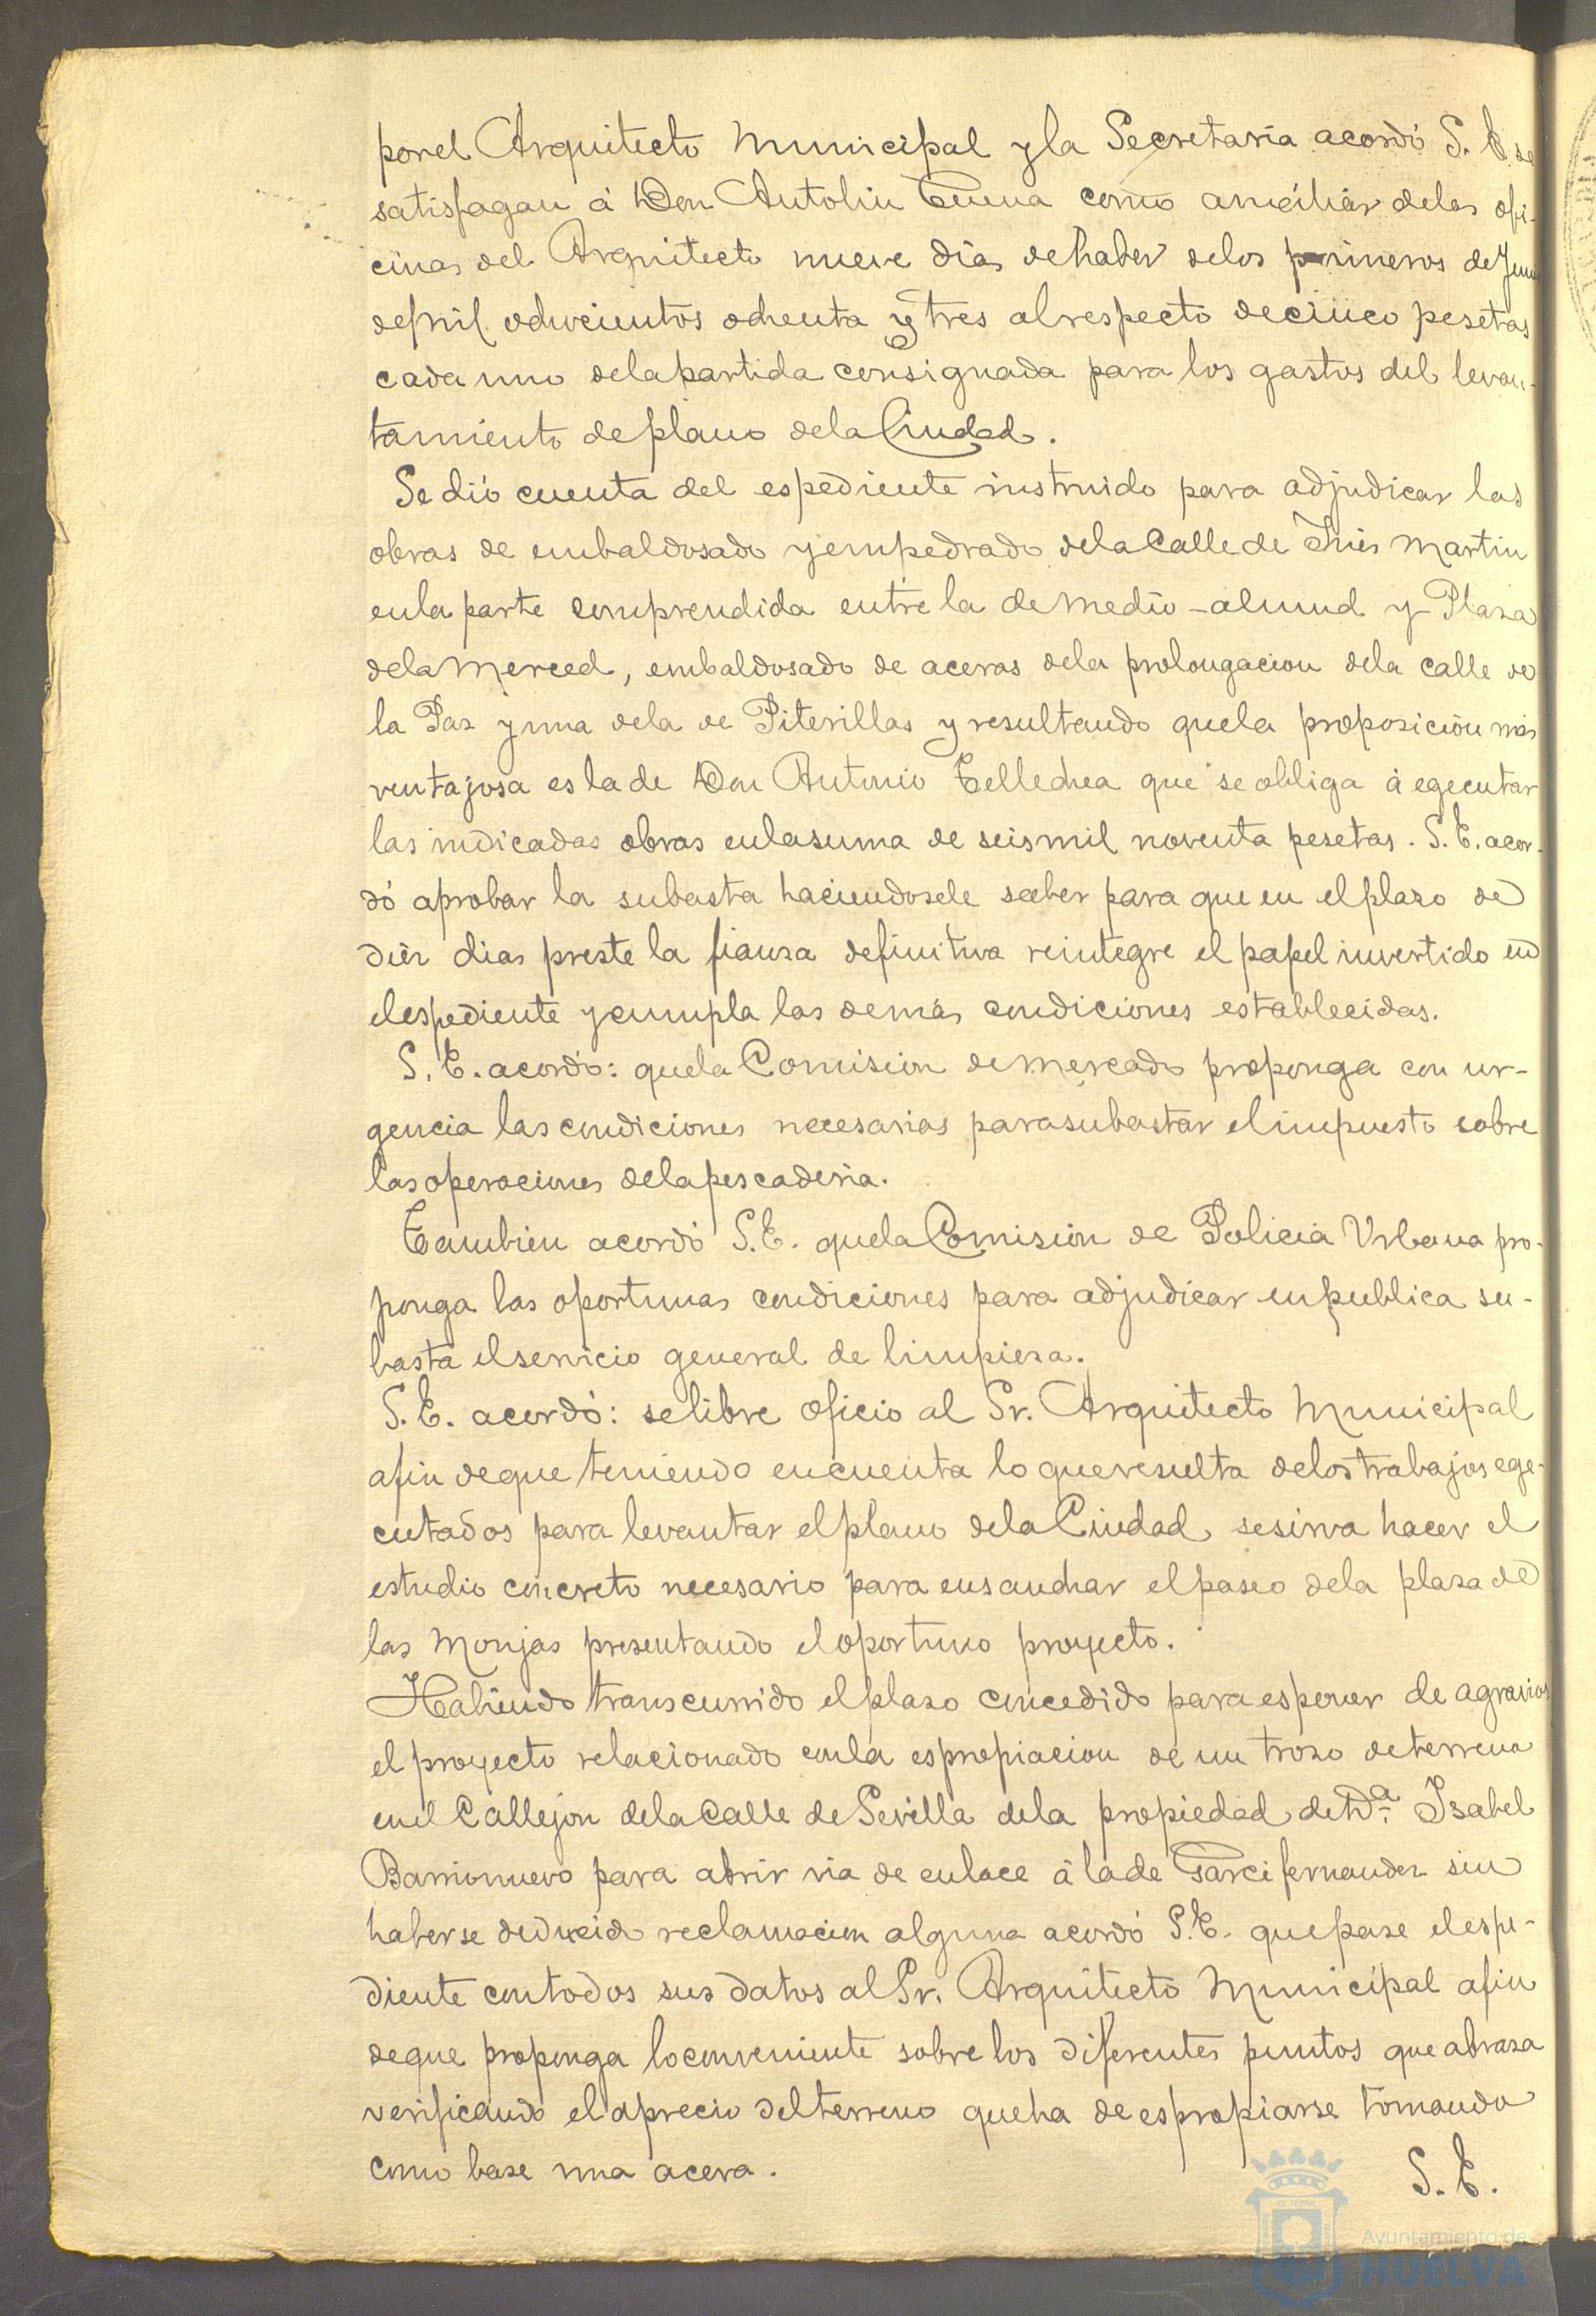 por el Arquitecto Municipal y la Secretaria acordó S. E. se
satisfagan á Don Antolin Cuena como auxiliar de las ofi-
cinas del Arquitecto nueve dias de haber de los primeros de Junio
de mil ochocientos ochenta y tres al respecto de cinco pesetas
cada uno de la partida consignada para los gastos del levan-
tamiento de plano de la Ciudad.
Se dió cuenta del espediente instruido para adjudicar las
obras de embaldosado y empedrado de la Calle de Inés Martin
en la parte comprendida entre la de Medio-almud y Plaza
de la Merced, embaldosado de aceras de la prolongacion de la calle de
la Paz y una de la de Piterillas y resultando que la proposición más
ventajosa es la de Don Antonio Tellechea que se obliga á egecutar
las indicadas obras en la suma de seis mil noventa pesetas. S. E. acor-
dó aprobar la subasta haciendosele saber para que en el plazo de
diéz dias preste la fianza definitiva reintegre el papel invertido en
el espediente y cumpla las demás condiciones establecidas.
S. E. acordó: que la Comision de Mercado proponga con ur-
gencia las condiciones necesarias para subastar el impuesto sobre
las operaciones de la pescaderia.
Tambien acordó S. E. que la Comisión de Policia Urbana pro-
ponga las oportunas condiciones para adjudicar en publica su-
basta el servicio general de limpieza.
S. E. acordó: se libre oficio al Sr. Arquitecto Municipal
afin de que teniendo en cuenta lo que resulta de los trabajos ege-
cutados para levantar el plano de la Ciudad, se sirva hacer el
estudio concreto necesario para ensanchar el paseo de la plaza de
las Monjas presentando el oportuno proyecto.
Habiendo transcurrido el plazo concedido para esponer de agravios
el proyecto relacionado con la espropiacion de un trozo de terreno
en el Callejon de la Calle de Sevilla de la propiedad de Dª. Isabel
Barrionuevo para abrir via de enlace á la de Garcifernandez sin
haberse deducido reclamacion alguna acordó S. E. que pase el espe-
diente con todos sus datos al Sr. Arquitecto Municipal afin
de que proponga lo conveniente sobre los diferentes puntos que abraza
verificando el aprecio del terreno que ha de espropiarse tomando
como base una acera.
S. E.
Ayuntamiento de
HUELVA